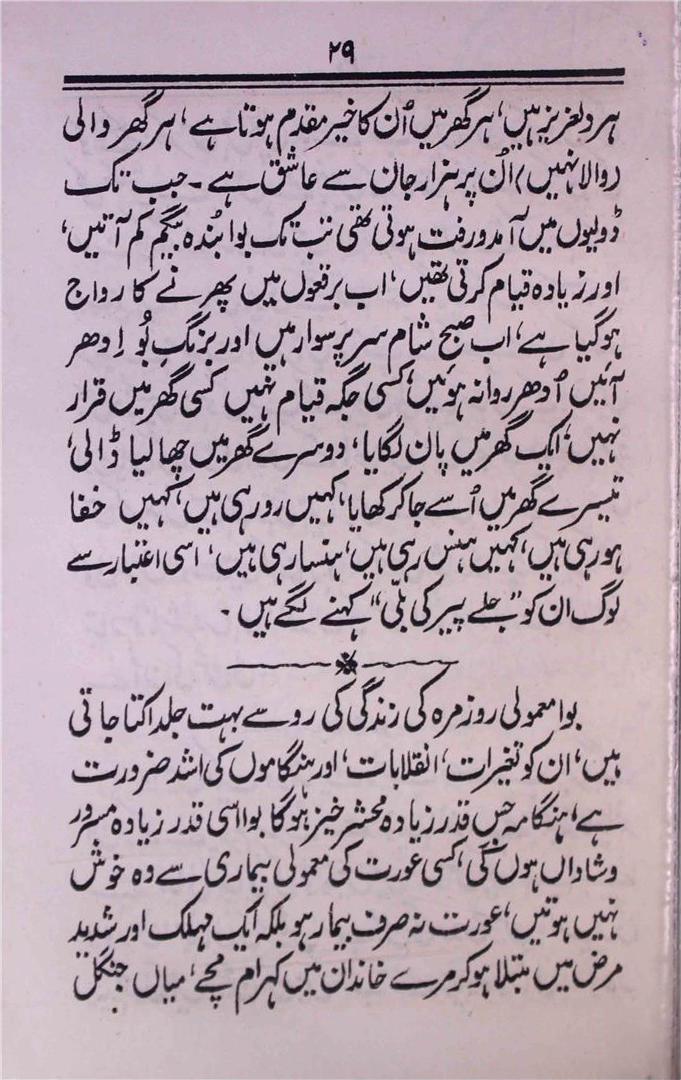 ۲۹
ہر دلعزیز ہیں، ہر گھر میں اُن کا خیر مقدم ہوتا ہے، ہر گھر والی
(والا نہیں) اُن پر ہزار جان سے عاشق ہے۔ جب تک
ڈولیوں میں آمدورفت ہوتی تھی تب تک بوا بُندہ بیگم کم آتیں،
اور زیادہ قیام کرتی تھیں، اب برقعوں میں پھرنے کا رواج
ہوگیا ہے، اب صبح شام سر پر سوار ہیں اور بزنگِ بُو اِدھر
آئیں اُدھر روانہ ہوئیں، کسی جگہ قیام نہیں کسی گھر میں قرار
نہیں، ایک گھر میں پان لگایا، دوسرے گھر میں چھالیا ڈالی،
تیسرے گھر میں اُسے جا کر کھایا، کہیں رو رہی ہیں، کہیں خفا
ہو رہی ہیں، کہیں ہنس رہی ہیں، ہنسا رہی ہیں، اسی اعتبار سے
لوگ ان کو "جلے پیر کی بلّی" کہنے لگے ہیں۔
بوا معمولی روزمرہ کی زندگی کی رو سے بہت جلد اکتا جاتی
ہیں، ان کو تغیرات، انقلابات، اور ہنگاموں کی اشد ضرورت
ہے، ہنگامہ جس قدر زیادہ محشر خیز ہوگا بوا اسی قدر زیادہ مسرور
و شاداں ہوں گی، کسی عورت کی معمولی بیماری سے وہ خوش
نہیں ہوتیں، عورت نہ صرف بیمار ہو بلکہ ایک مہلک اور شدید
مرض میں مبتلا ہو کر مرے خاندان میں کہرام مچے، میاں جنگل